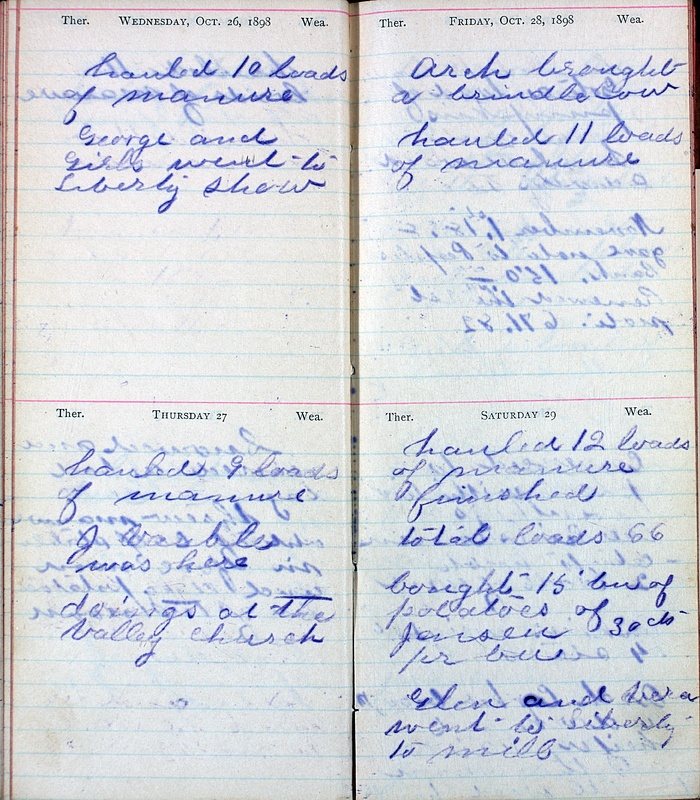 Ther. WEDNESDAY, OCT. 26, 1898 Wea.
hauled 10 loads
of manure
George and
Girls went to
Liberty Show
Ther. THURSDAY 27 Wea.
hauled 9 loads
of manure
J
was here
doings at the
Valley church
Ther. FRIDAY, OCT. 28, 1898 Wea.
Arch brought
a brindle cow
hauled 11 loads
of manure
Ther. SATURDAY 29 Wea.
hauled 12 loads
of manure
finished
total loads 66
bought 15 bu of
potatoes of
Jensen 30 cts
pr bu
Glen and Vera
went to Liberty
to mill